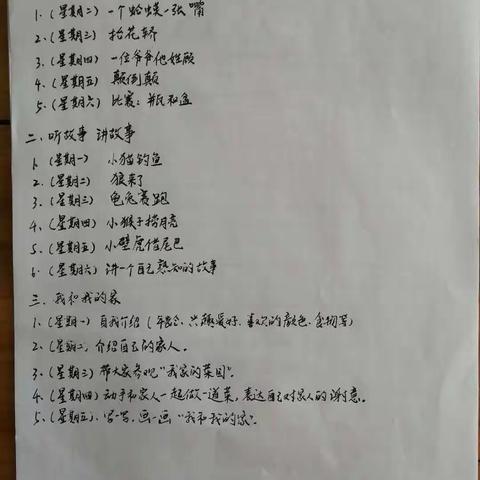 1.(星期二) 一个蛤蟆一张嘴
2.(星期三) 抬花轿
3.(星期四) 一位爷爷他姓顾
4.(星期五) 颠倒颠
5.(星期六) 比赛:瓶和盆
二.听故事 讲故事
1.(星期一) 小猫钓鱼
2.(星期二) 狼来了
3.(星期三) 龟兔赛跑
4.(星期四) 小猴子捞月亮
5.(星期五) 小壁虎借尾巴
6.(星期六) 讲一个自己熟知的故事
三.我和我的家
1.(星期一) 自我介绍(年龄、兴趣爱好、喜欢的颜色、食物等)
2.(星期二)介绍自己的家人。
3.(星期三)带大家参观“我家的菜园”。
4.(星期四)动手和家人一起做一道菜,表达自己对家人的谢意。
5.(星期五)、写一写,画一画“我和我的家”。